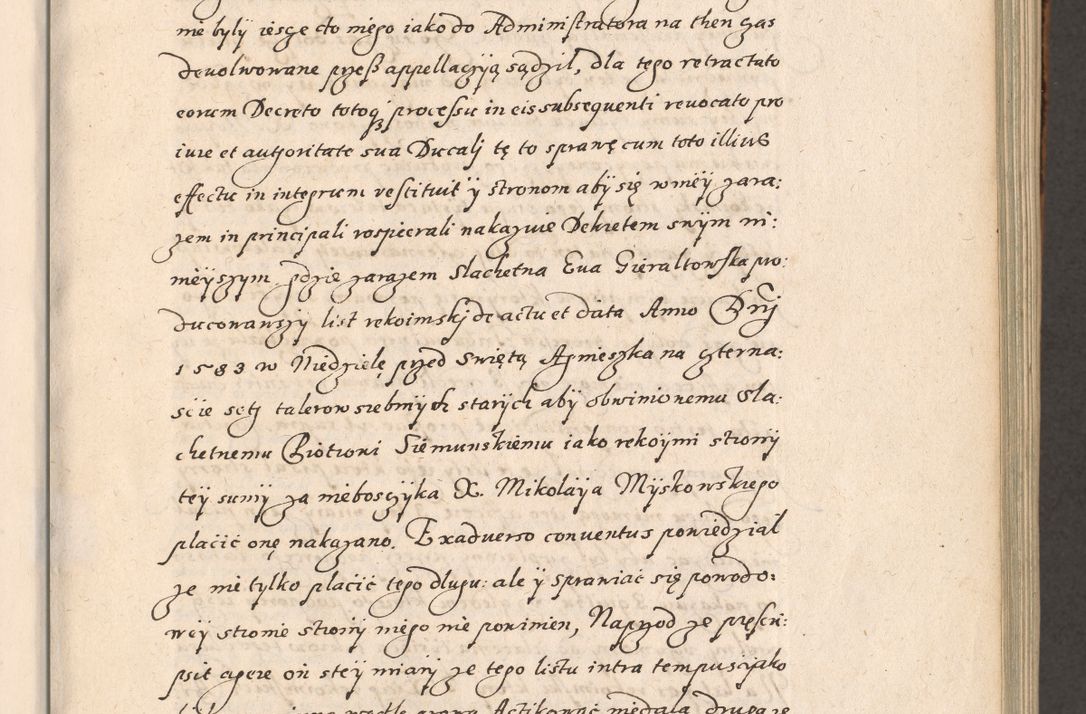 nie były iescze do niego iako do Administratora na then czas
dewolwowane przesz appellaczyią sądził, dla tego retractato
eorum Decreto totoq3 processu in eis subsequenti reuocato pro
iure et authoritate sua Ducalj tę to sprawę cum toto illius
effectu in integrum restituit ÿ stronom aby się w nieÿ zara:
zem in principali rospierali nakazuie Dekretem swÿm ni:
nieÿszym gdzie zarazem Slachetna Ewa Gieraltowska pro:
ducowanszÿ list rekoimskj de actu et data Anno Dnj
1583 w Niedzielę przed Swiętą Agnieszka na czterna:
scie set talerow srebrnÿch starÿch aby obwinionemu Sla:
chetnemu Piotrowi Siemunskiemu iako rekoÿmi stronÿ
teÿ summÿ za nieboszczÿka X. Mikolaÿa Mÿskowskiego
płacić onę nakazano. Exaduerso conuentus powiedział
ze nie tylko płacić tego dlugu: ale ÿ sprawiać się powodo:
weÿ stronie stronÿ niego nie powinien, Naprzod ze prescri:
psit agere on steÿ miarÿ ze tego listu intra tempus iako